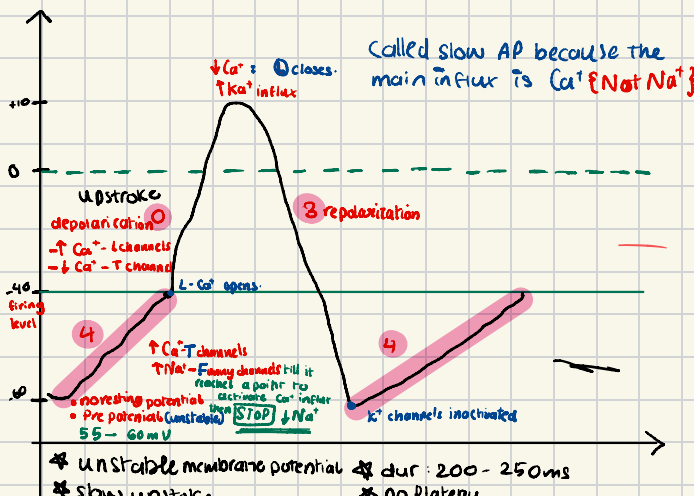 Called slow AP because the
main influx is Ca⁺ {Not Na⁺}
↓Ca⁺ : closes.
↑Ka⁺ influx
+10
0
upstroke
0
depolarication
-↑ Ca⁺- L channels
-↓ Ca⁺-T channel
3 repolarization
-40
firing
level
L-Ca⁺ opens.
4
4
↑ Ca⁺-T channels
↑Na⁺-Funny channels till it
reached a point to
activate Ca⁺ influx
then STOP ↓Na⁺
-60
• no resting potential
• Pre potenial (unstable)
55 - 60mV
K⁺ channels inactivated
☆ unstable membrane potential
☆ dur : 200 - 250ms
☆ slow upstroke
☆ no Plateau